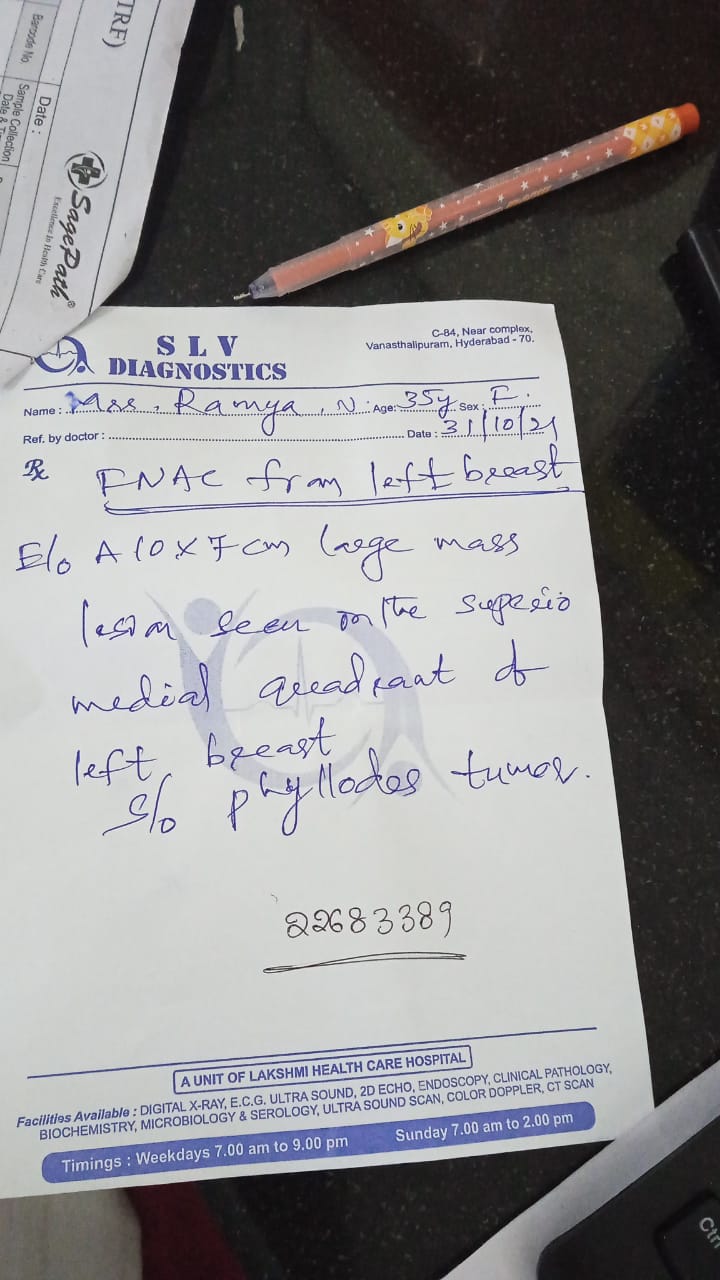 TRF)
Barcode No.
Sample Collection
Date :
SagePath®
Excellence In Health Care
S L V
DIAGNOSTICS
C-84, Near complex,
Vanasthalipuram, Hyderabad - 70.
Name : Mrs. Ramya. N. Age: 35y Sex : F.
Ref. by doctor : Date : 31/10/21
Rx
FNAC from left breast
E/o A 10 X 7 cm large mass
lesion seen on the superio
medial quadrant of
left breast
S/o phyllodes tumor.
22683389
A UNIT OF LAKSHMI HEALTH CARE HOSPITAL
Facilities Available : DIGITAL X-RAY, E.C.G. ULTRA SOUND, 2D ECHO, ENDOSCOPY, CLINICAL PATHOLOGY,
BIOCHEMISTRY, MICROBIOLOGY & SEROLOGY, ULTRA SOUND SCAN, COLOR DOPPLER, CT SCAN
Timings : Weekdays 7.00 am to 9.00 pm Sunday 7.00 am to 2.00 pm
Ctrl